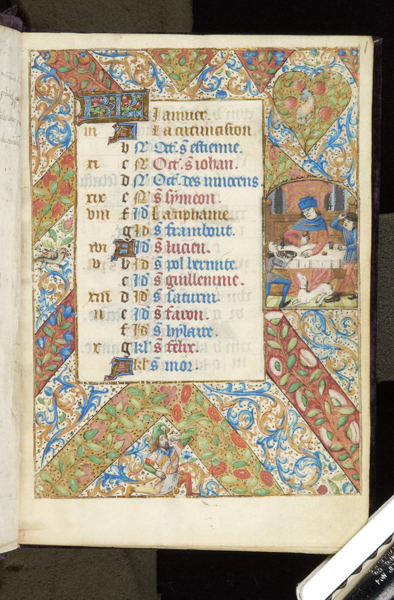 KL Januier.
iii A La circuncision.
b N Oct. s. estienne.
xi c N Oct. s. iohan.
d N Oct. des innocens.
xix e N s. symeon.
viii f Id La tiphaine.
g Id s. frambout.
xvi A Id s. lucien.
v b Id s. pol hermite.
c Id s. guillemme.
xiii d Id s. saturin.
ii e Id s. faron.
f Id s. hylaire.
x g kl s. felix.
A kl s. mor.